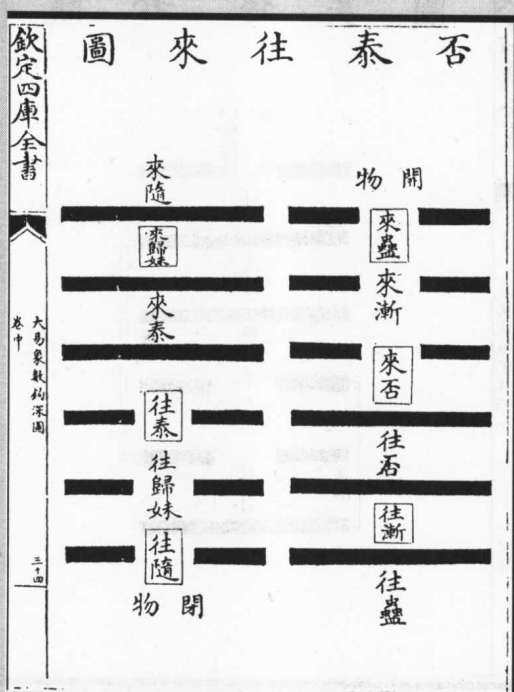 否泰往來圖
開物
來蠱
來漸
來否
往否
往漸
往蠱
來隨
來歸妹
來泰
往泰
往歸妹
往隨
閉物
欽定四庫全書
大易象數鈎深圖
卷中
三十四